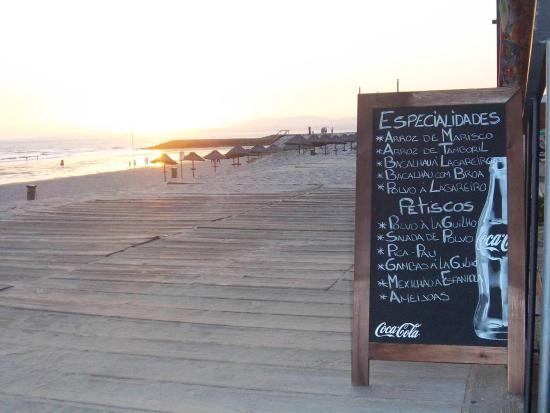 Especialidades
*Arroz de Marisco
*Arroz de Tamboril
*Bacalhau à Lagareiro
*Bacalhau com Broa
*Polvo à Lagareiro
Petiscos
*Polvo à La Guilho
*Salada de Polvo
*Pica-Pau
*Gambas à la Guilho
*Mexilhão à Espanhola
*Ameijoas
Coca-Cola
Coca-Cola